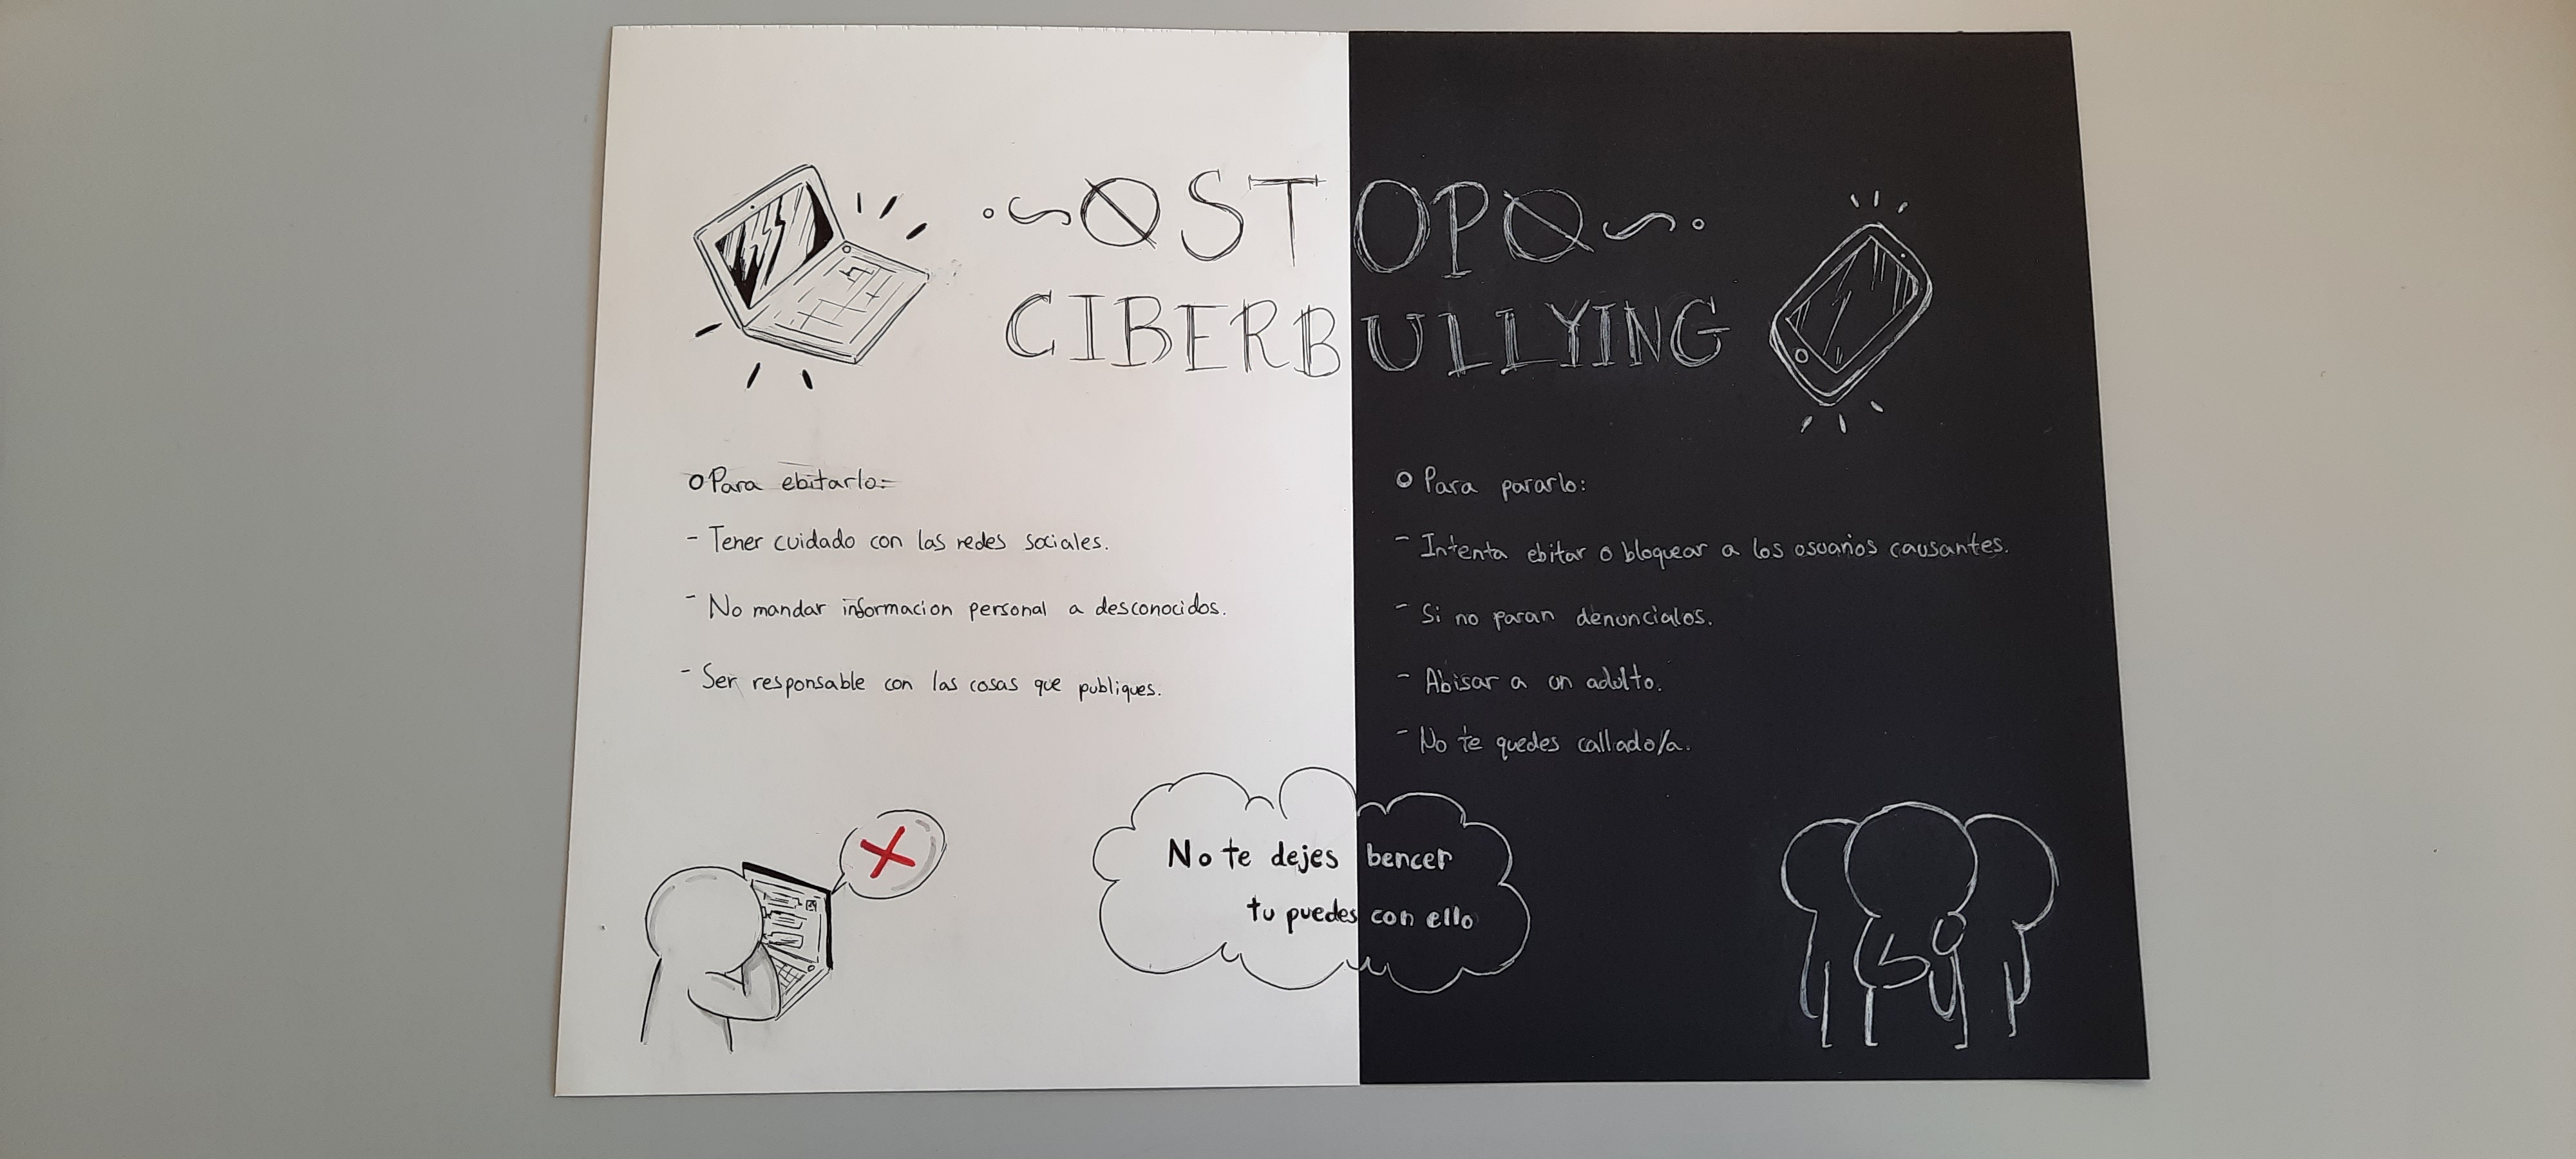 STOP
CIBERBULLYING
Para ebitarlo:
- Tener cuidado con las redes sociales.
- No mandar informacion personal a desconocidos.
- Ser responsable con las cosas que publiques.
Para pararlo:
- Intenta ebitar o bloquear a los osuarios causantes.
- Si no paran denuncialos.
- Abisar a un adulto.
- No te quedes callado/a.
No te dejes bencer
tu puedes con ello